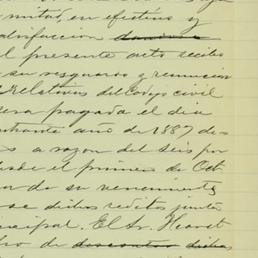 mitad, en efectivo y
satisfaccion
el presente acto recibe
su resguardo y renuncia
relativas del Codigo civil
sera pagada el dia
entrante año de 1887 de-
s a razon del seis por
desde el primero de Oct
de su vencimiento
se dichos reditos junto
cipal. El Sr. Heavet
ro de descontar dichos